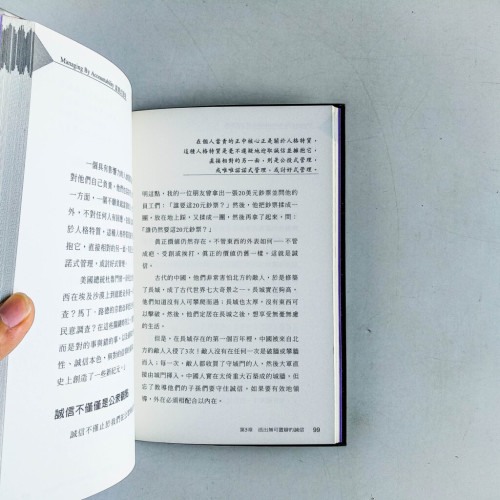 Managing By Accountability
一個具有影響力的人
對他們自己負責，他們
一方面，一個不願承
外，不對任何人有
於人格特質，這種人格
抱它，直接相對的另一面，
諾式管理，或討好式管理。
美國總統杜魯門曾
西在埃及沙漠上到底
查？馬丁．路德的宗教
民意調查？在這些關
而是對的事與錯的事，以
性、誠信本色，與
史上創造了一些新紀元
誠信不僅僅是公眾
誠信不止於我們
在個人當責的正中核心正是關於人格特質，
這種人格特質是毫不遲疑地迎取誠信並擁抱它，
直接相對的另一面，則是公投式管理，
或唯唯諾諾式管理，或討好式管理。
明這點，我的一位朋友曾拿出一張20美元鈔票並問他的
員工們：「誰要這20元鈔票？」然後，他把鈔票揉成一
團，放在地上踩，又揉成一團，然後再拿起來，問：
「誰仍然要這20元鈔票？」
真正價值仍然存在。不管東西的外表如何——不管
成疤、受創或挨打，真正的價值仍舊一樣。這就是誠
信。
古代的中國，他們非常害怕北方的敵人，於是修築
了長城，成了古代世界七大奇景之一。長城實在夠高，
他們知道沒有人可攀爬而過；長城也太厚，沒有東西可
以擊破。然後，他們定居在長城之後，想享受無憂無慮
的生活。
但是，在長城存在的第一個百年裡，中國被來自北
方的敵人入侵了3次！敵人沒有在任何一次是破牆或攀牆
而入；每一次，敵人都收買了守城門的人，然後大軍直
接由城門揮入。中國人實在太倚重大石築成的城牆，但
忘了教導他們的子孫們要守住誠信。如果要有效地領
導，外在必須相配合以內在。
第3章 活出無可置疑的誠信 99